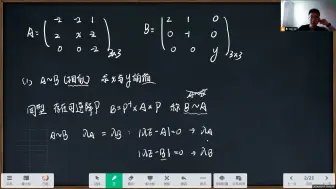 A = ( -2 -2 1
2 x -2
0 0 -2 )3×3
B = ( 2 1 0
0 -1 0
0 0 y )3×3
(1) A~B (相似) 求x与y的值
同型 存在可逆阵P B=P⁻¹×A×P 称 B~A
A~B λA = λB : |λE-A|=0 → λA
|λE-B|=0 → λB